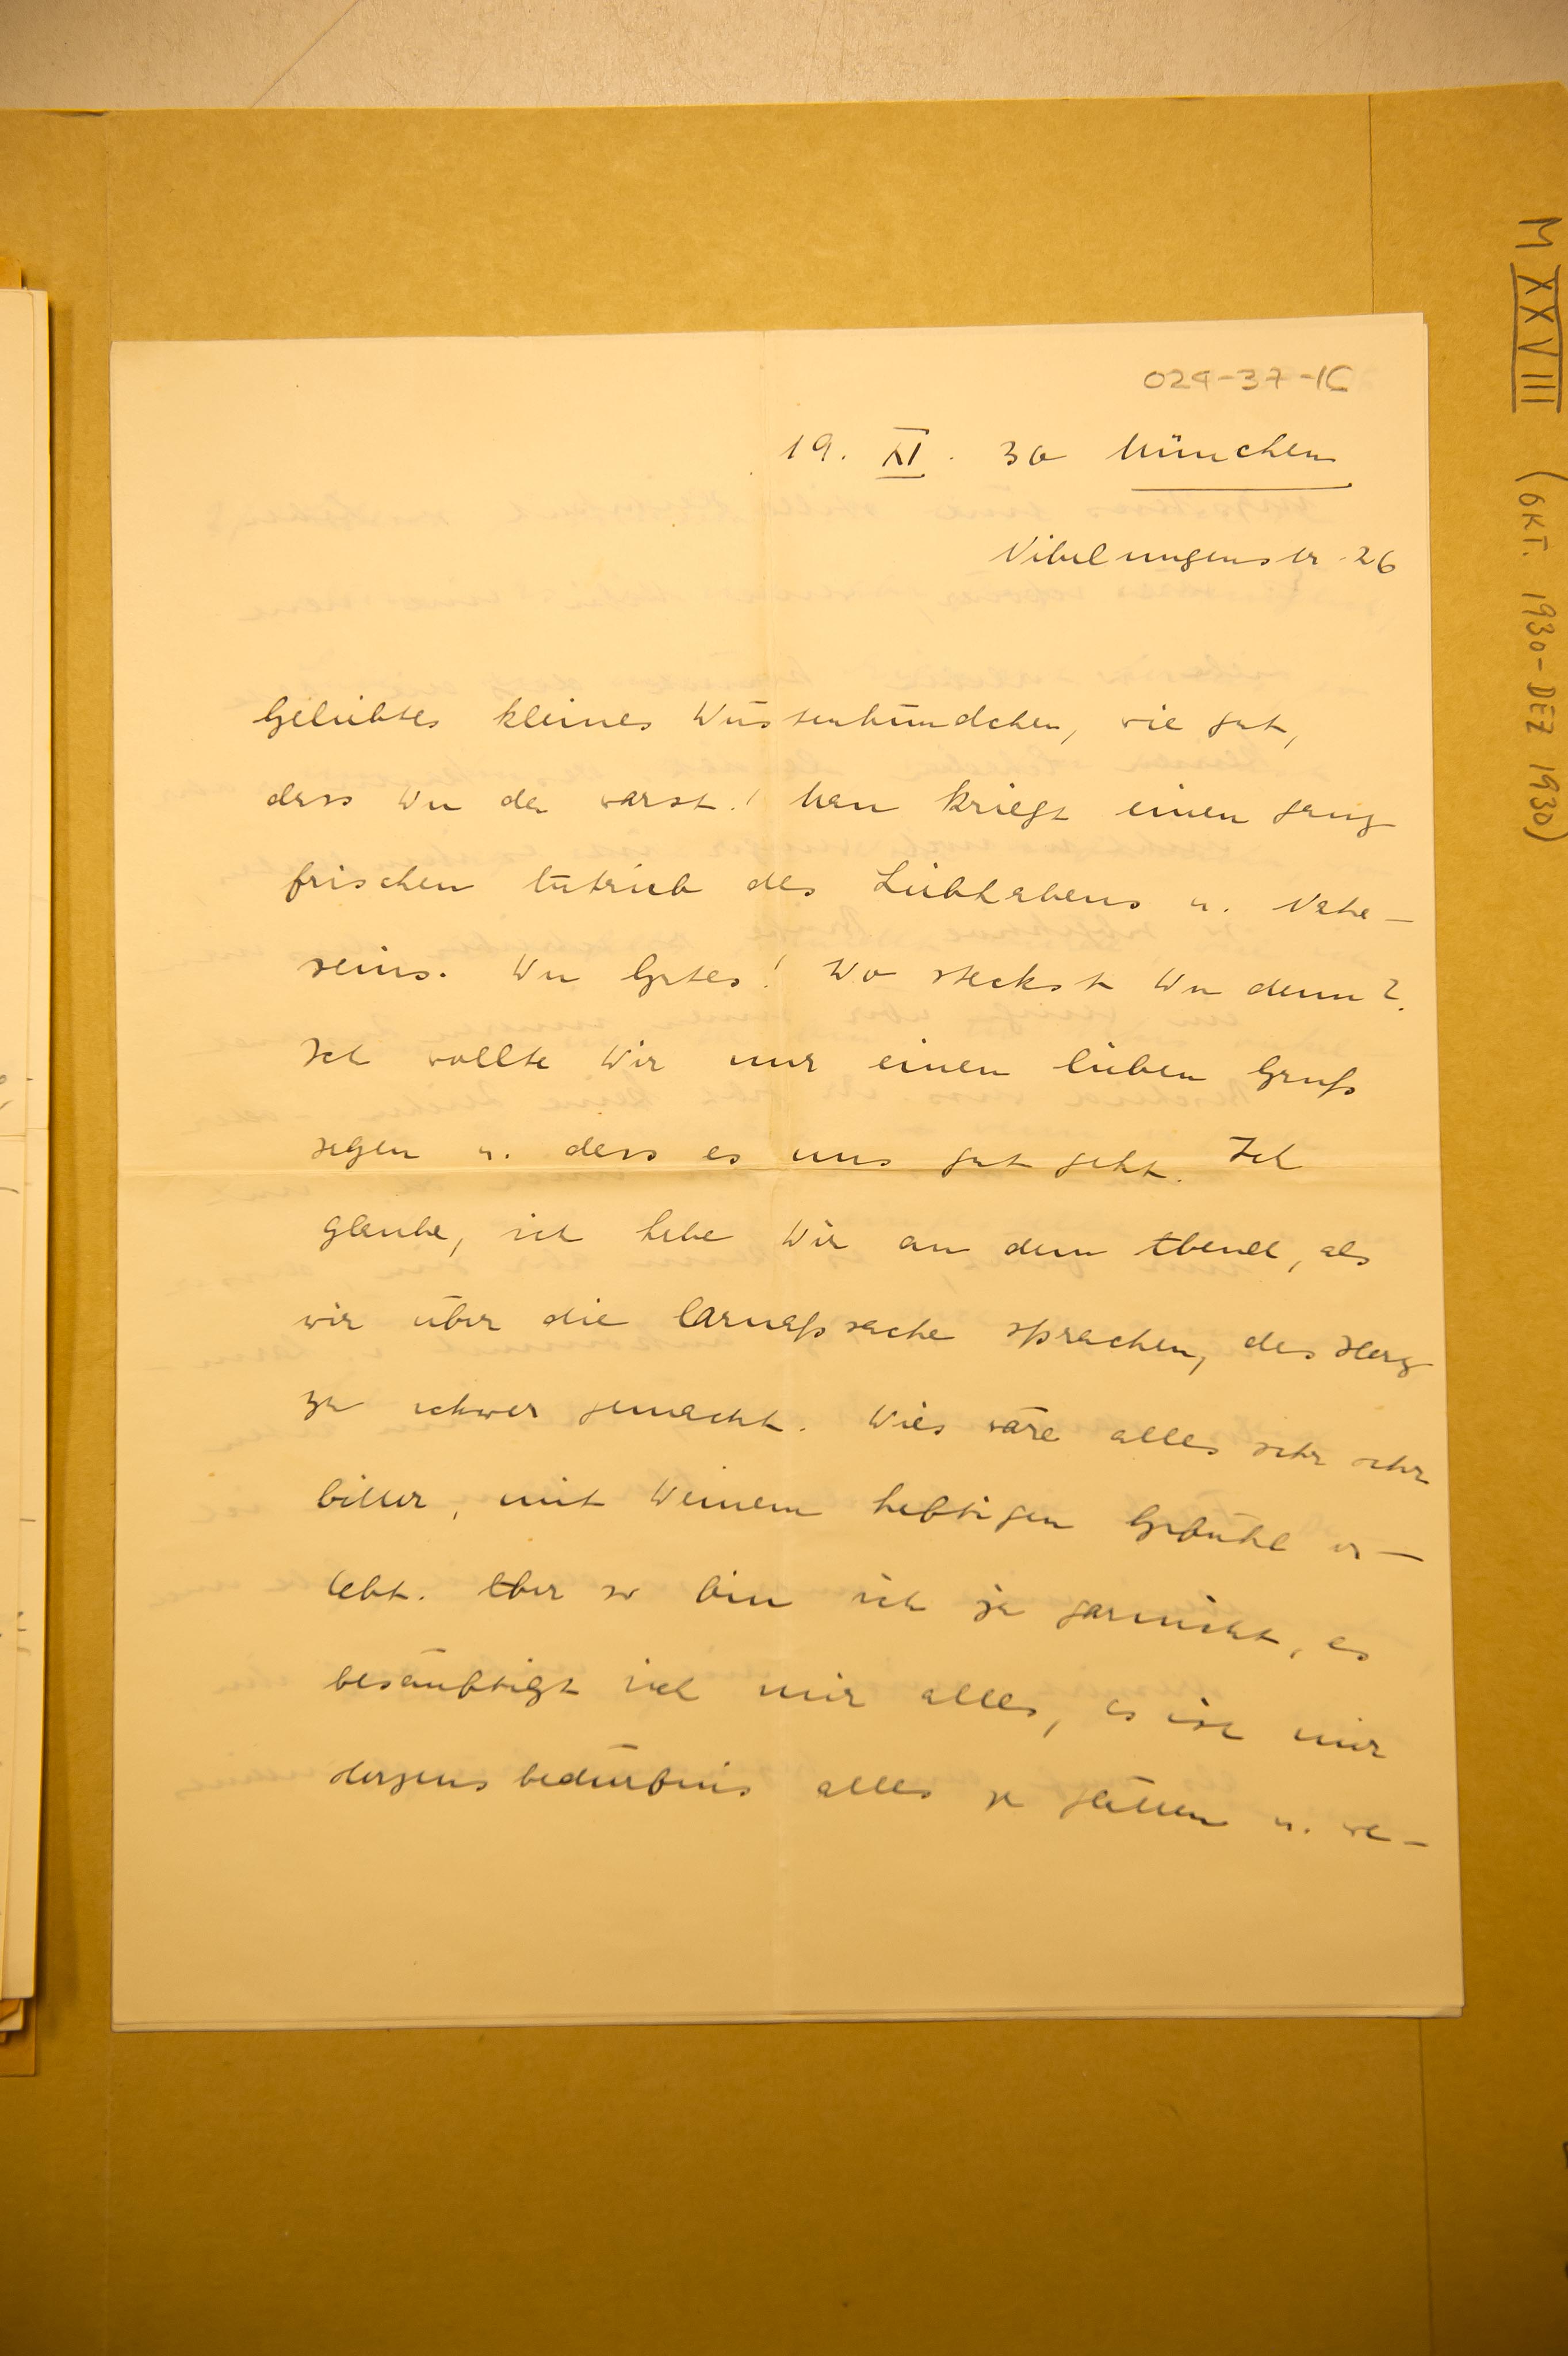 024-37-16
19. XI. 30 München
Nibelungenstr. 26
Geliebtes kleines Wüstenhündchen, wie gut,
dass Du da warst! Man kriegt einen ganz
frischen Antrieb des Liebhabens u. Nahe-
seins. Du Gutes! Wo steckst Du denn?
Ich wollte Dir nur einen lieben Gruß
sagen u. dass es uns gut geht. Ich
glaube, ich habe Dir an dem Abend, als
wir über die Carnapsache sprachen, das Herz
zu schwer gemacht. Dies wäre alles sehr sehr
bitter, mit Deinem heftigen Gefühl er-
lebt. Aber so bin ich ja garnicht, es
besänftigt sich mir alles, es ist mir
Herzensbedürfnis alles zu glätten u. we-
M XXVIII (OKT. 1930-DEZ 1930)